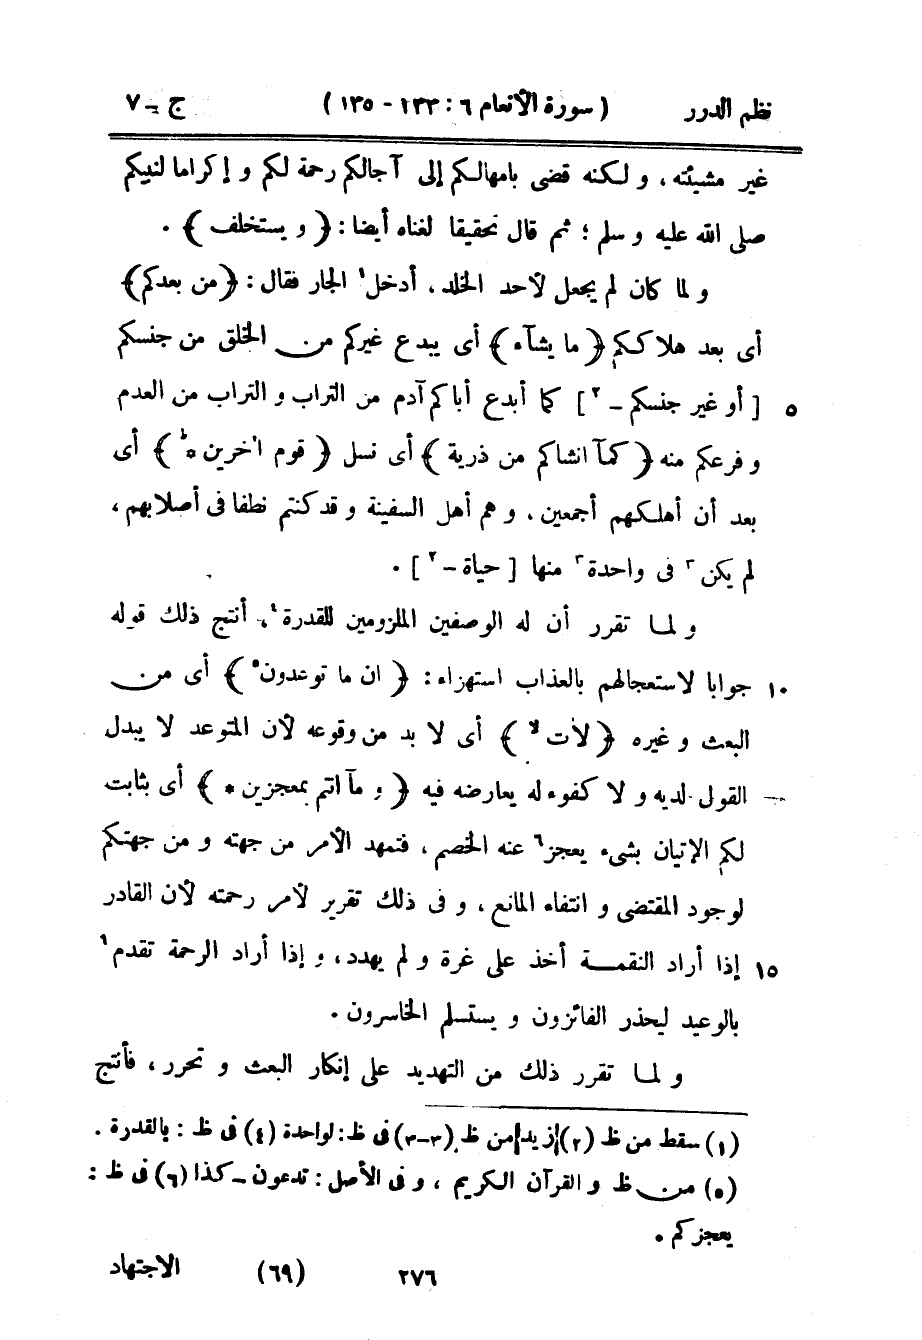 نظم الدرر ( سورة الأنعام ٦ : ١٣٣ - ١٣٥ ) ج - ٧
غير مشيئته ، و لكنه قضى بامهالكم إلى آجالكم رحمة لكم و إكراما لنبيكم
صلى الله عليه و سلم ؛ ثم قال تحقيقا لغناه أيضا : ﴿ و يستخلف ﴾ .
و لما كان لم يجعل لأحد الخلد ، أدخل ١ الجار فقال : ﴿ من بعدكم ﴾
أى بعد هلاككم ﴿ ما يشآء ﴾ أى يبدع غيركم من الخلق من جنسكم
٥ [ أو غير جنسكم - ٢ ] كما أبدع أباكم آدم من التراب و التراب من العدم
و فرعكم منه ﴿ كمآ انشاكم من ذرية ﴾ أى نسل ﴿ قوم اٰخرين ه ط ﴾ أى
بعد أن أهلكهم أجمعين ، و هم أهل السفينة و قد كنتم نطفا فى أصلابهم ،
لم يكن ٣ فى واحدة ٣ منها [ حياة - ٢ ] .
و لما تقرر أن له الوصفين الملزومين للقدرة ٤ ، أنتج ذلك قوله
١٠ جوابا لاستعجالهم بالعذاب استهزاء : ﴿ ان ما توعدون ٥ ﴾ أى من
البعث و غيره ﴿ لاٰت لا ﴾ أى لا بد من وقوعه لأن المتوعد لا يبدل
القول لديه و لا كفوء له يعارضه فيه ﴿ و مآ انتم بمعجزين ه ﴾ أى بثابت
لكم الإتيان بشىء يعجز ٦ عنه الخصم ، فتمهد الأمر من جهته و من جهتكم
لوجود المقتضى و انتفاء المانع ، و فى ذلك تقرير لأمر رحمته لأن القادر
١٥ إذا أراد النقمة أخذ على غرة و لم يهدد ، و إذا أراد الرحمة تقدم ١
بالوعيد ليحذر الفائزون و يستسلم الخاسرون .
و لما تقرر ذلك من التهديد على إنكار البعث و تحرر ، فأنتج
(١) سقط من ظ (٢) زيد من ظ (٣-٣) فى ظ : لواحدة (٤) فى ظ : بالقدرة .
(٥) من ظ و القرآن الكريم ، و فى الأصل : تدعون - كذا (٦) فى ظ :
يعجزكم .
٢٧٦ (٦٩) الاجتهاد